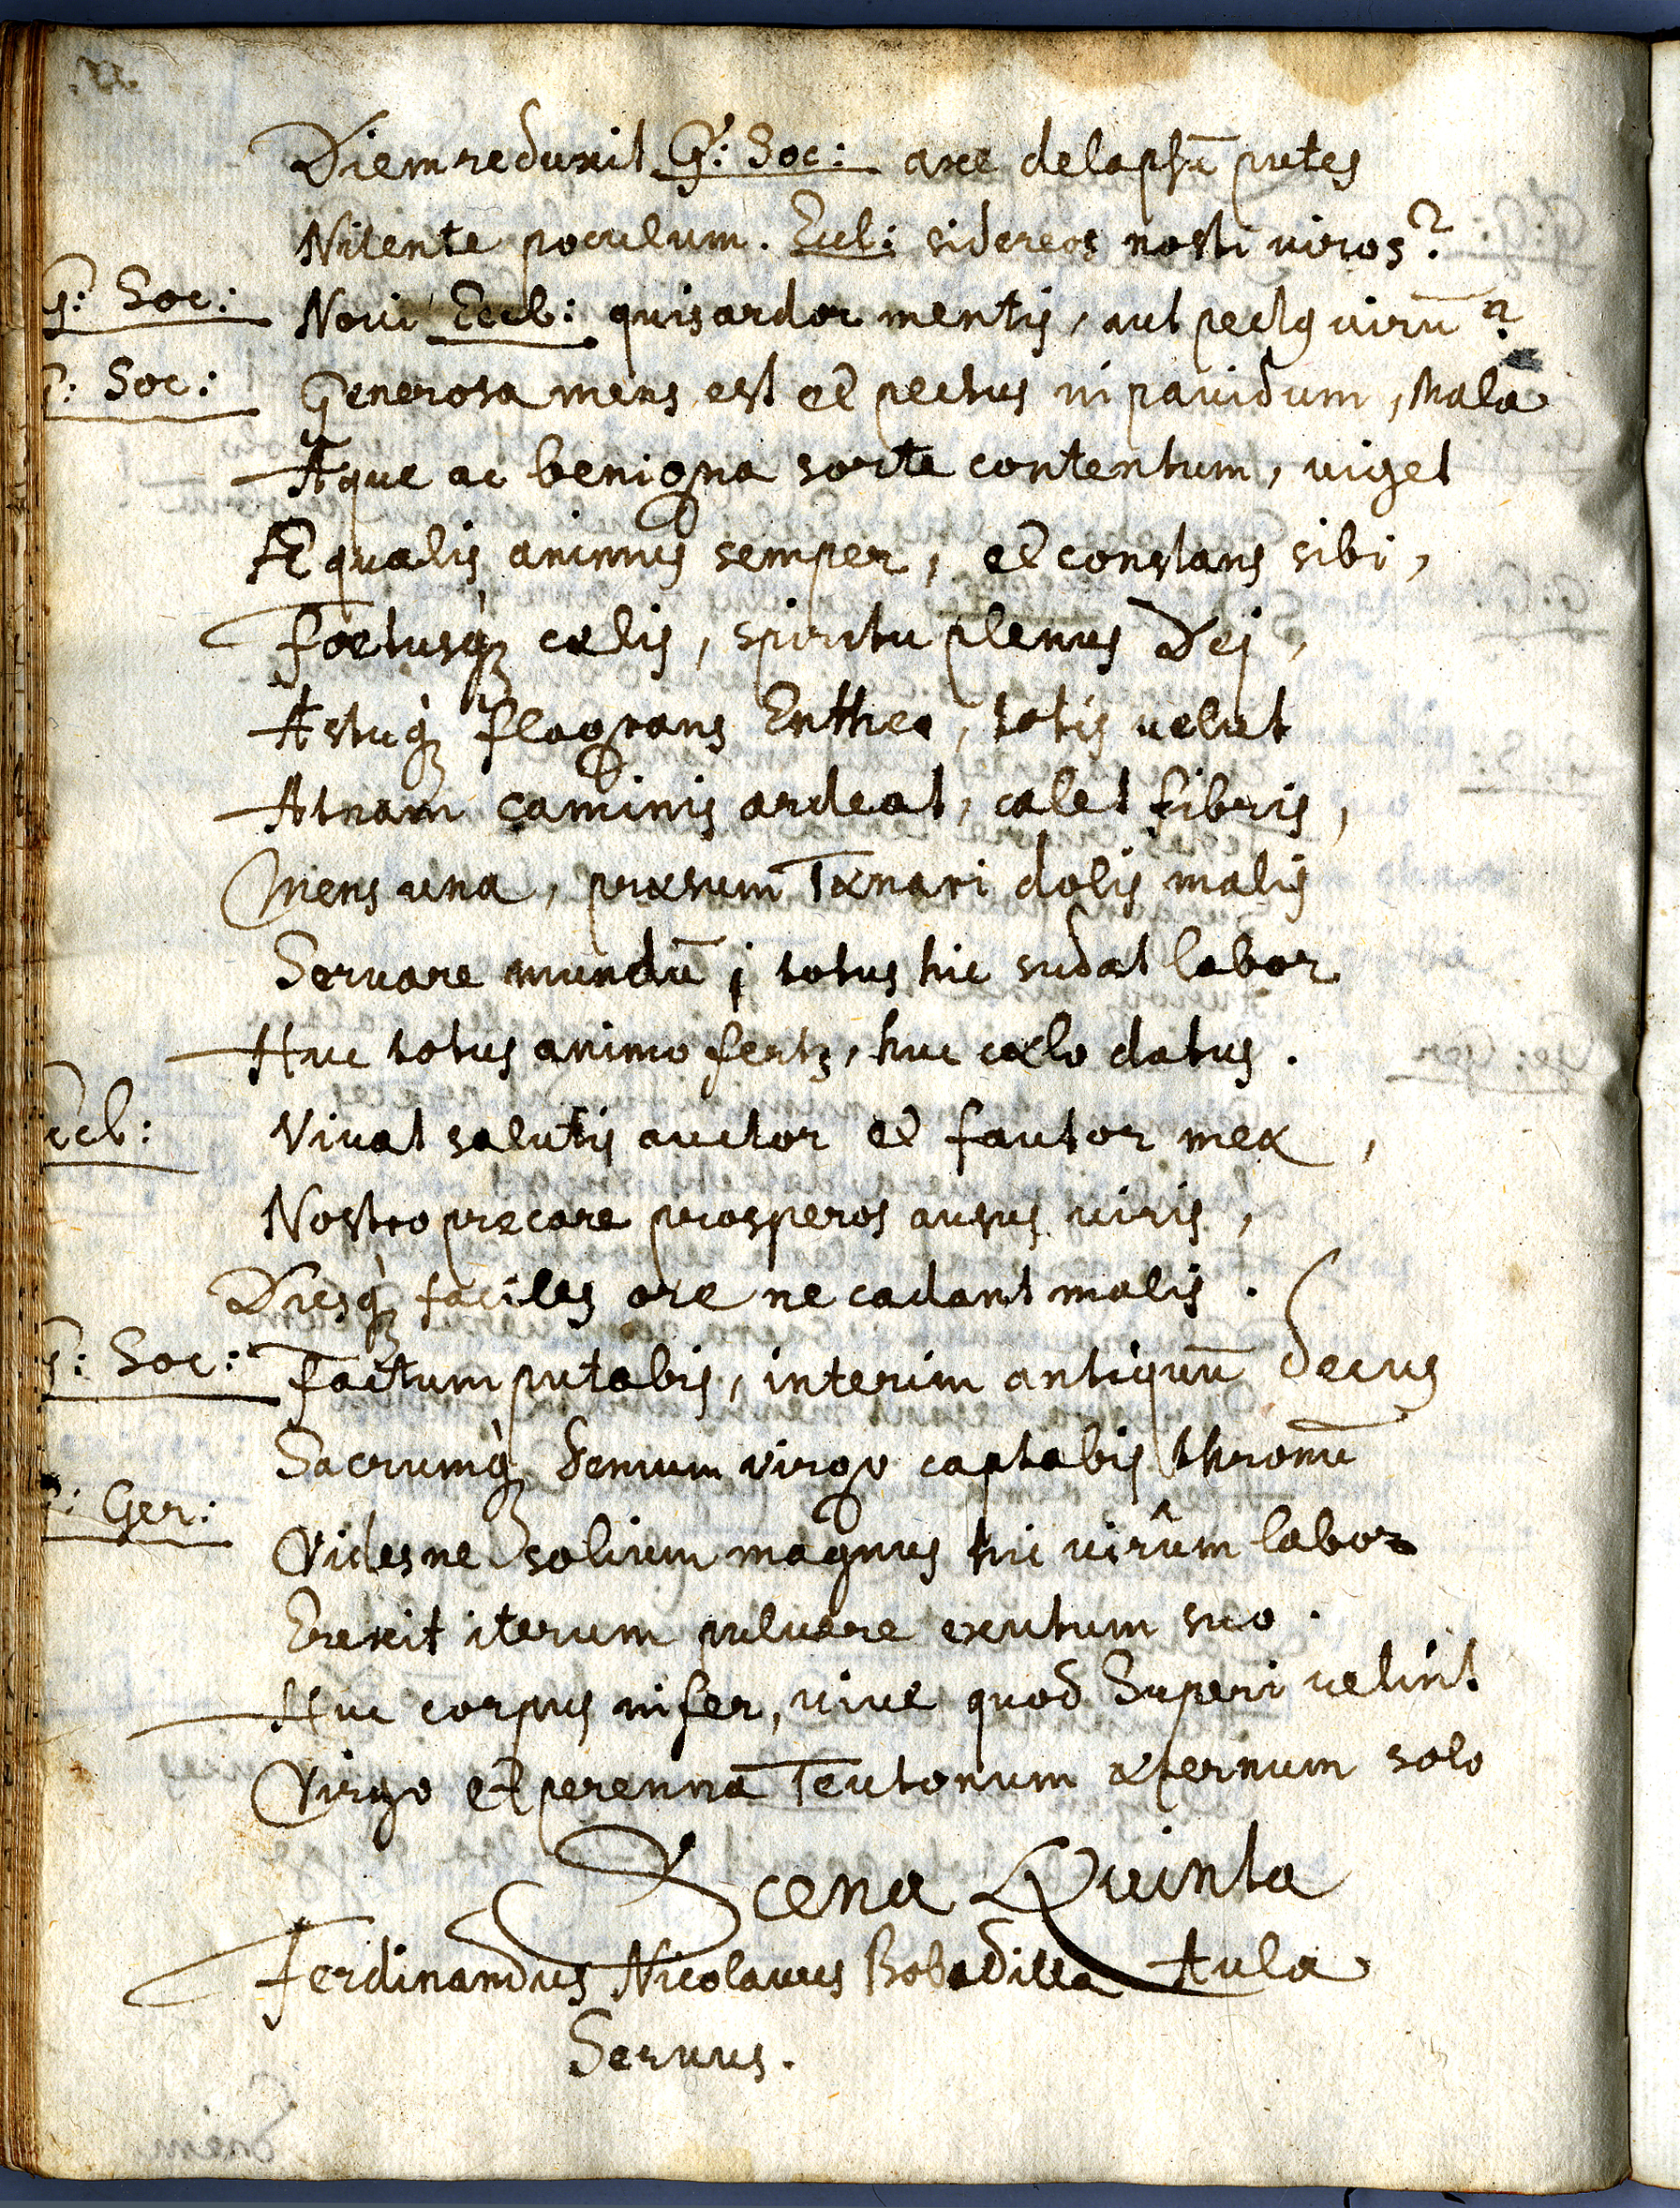 Diem reduxit G: Soc: axe delapsū putes
Nitente poculum. Eccl: sidereos nosti viros?
G: Soc: Novi Eccl: quis ardor mentis, aut pectꝯ virū?
G: Soc: Generosa mens est et pectus inpavidum, mala
Æque ac benigna sorte contentum, viget
Æqualis animus semper, et constans sibi,
Foetusq; cælis, spiritu plenus Dei,
Æstuq; flagrans Entheo, totis velut
Ætnam caminis ardeat, calet fibris,
Mens una, præsum Tænari dolis malis
Servare mundū; totus hic sudat labor
Huc totus animo fertꝫ, huc cælo datus.
Eccl: Vivat salutis auctor et fautor meæ,
Nostro precare prosperos ausus viris,
Diesq; faciles ore ne cadant malis.
G: Soc: Factum putabis, interim antiquū decus
Sacrumq; demum virgo captabis thronū
G: Ger: Videsne solium magnus hic virûm labor
Erexit iterum pulvere exutum suo.
Huc corpus infer, vive quod Superi velint
Virgo et perennā Teutonum æternum solo
Scena Quinta
Ferdinandus Nicolaus Bobadilla Aulæ
Servus.